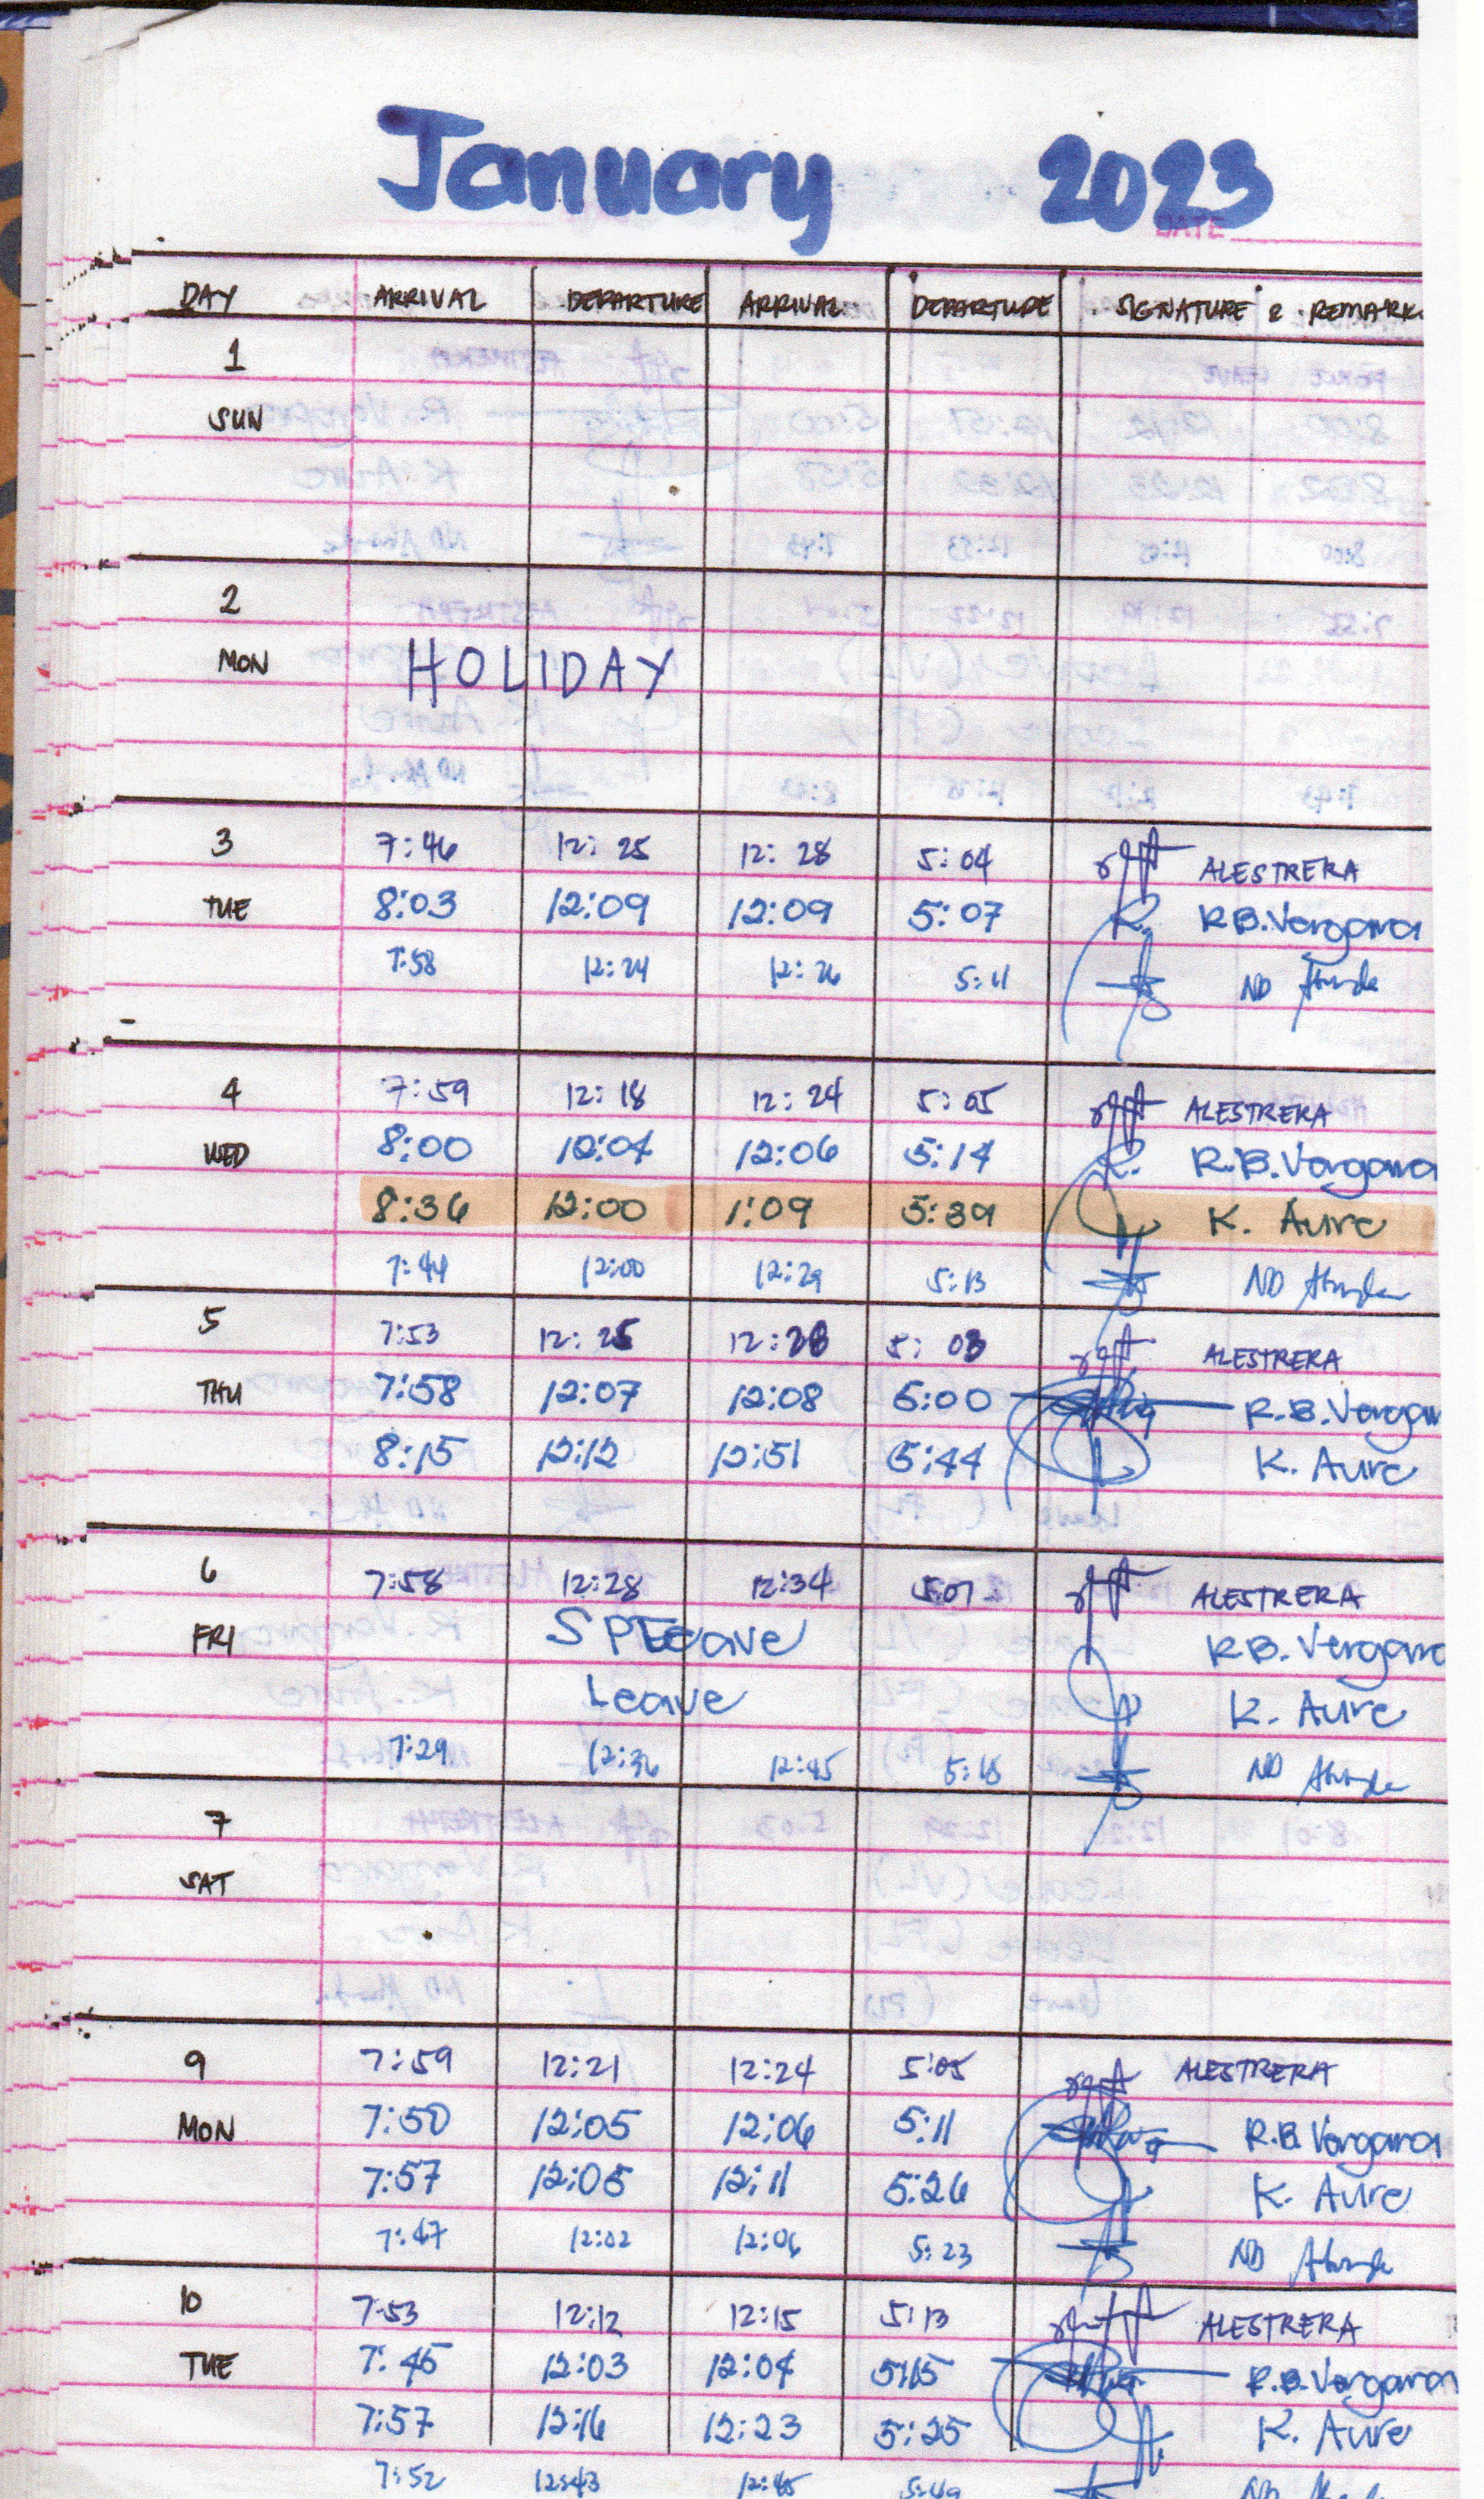 January 2023
DATE
DAY ARRIVAL DEPARTURE ARRIVAL DEPARTURE SIGNATURE & REMARK
1
SUN
2
MON HOLIDAY
3 7:46 12:25 12:28 5:04 ALESTRERA
TUE 8:03 12:09 12:09 5:07 R.B.Vergara
7:58 12:24 12:26 5:11 ND
4 7:59 12:18 12:24 5:05 ALESTRERA
WED 8:00 12:04 12:06 5:14 R.B.Vergara
8:36 12:00 1:09 5:39 K. Aure
7:44 12:00 12:29 5:13 ND
5 7:53 12:25 12:28 5:03 ALESTRERA
THU 7:58 12:07 12:08 5:00 R.B.Vergar
8:15 12:12 12:51 5:44 K. Aure
6 7:58 12:28 12:34 5:07 ALESTRERA
FRI R.B. Vergara
Leave K. Aure
7:29 12:36 12:45 5:18 ND
7
SAT
9 7:59 12:21 12:24 5:05 ALESTRERA
MON 7:50 12:05 12:06 5:11 R.B.Vergara
7:57 12:05 12:11 5:26 K. Aure
7:47 12:02 12:06 5:23 ND
10 7:53 12:12 12:15 5:13 ALESTRERA
TUE 7:45 12:03 12:04 5:15 R.B.Vergara
7:57 12:16 12:23 5:25 K. Aure
7:52 12:43 12:45 5:49 ND